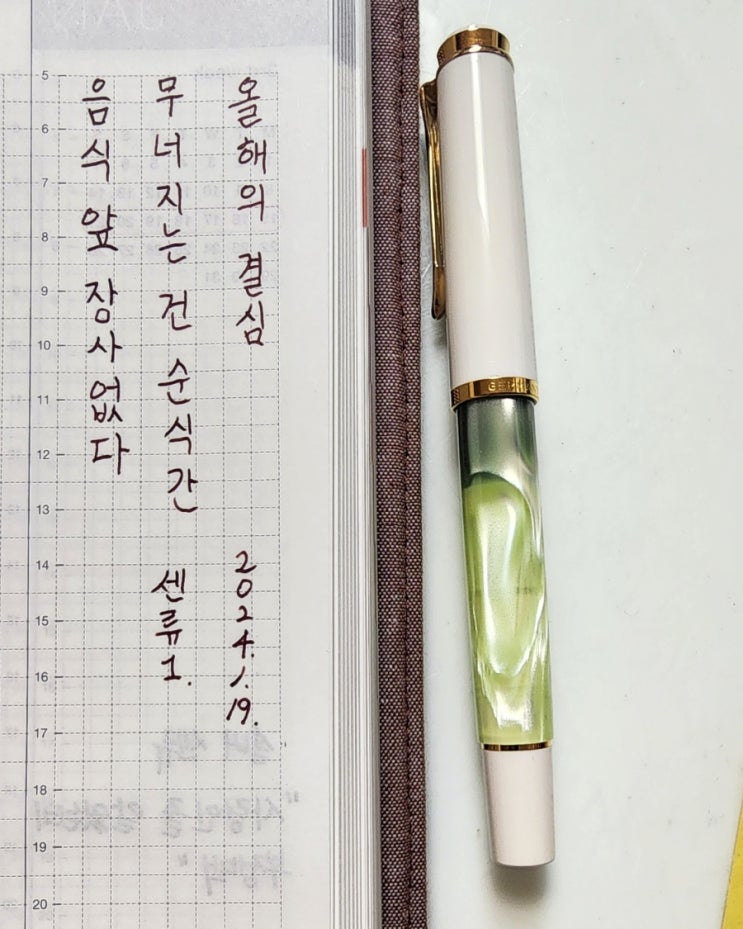 올해의 결심
2024.1.19.
무너지는 건 순식간
센류 1.
음식 앞 장사없다
5
6
7
8
9
10
11
12
13
14
15
16
17
18
19
20